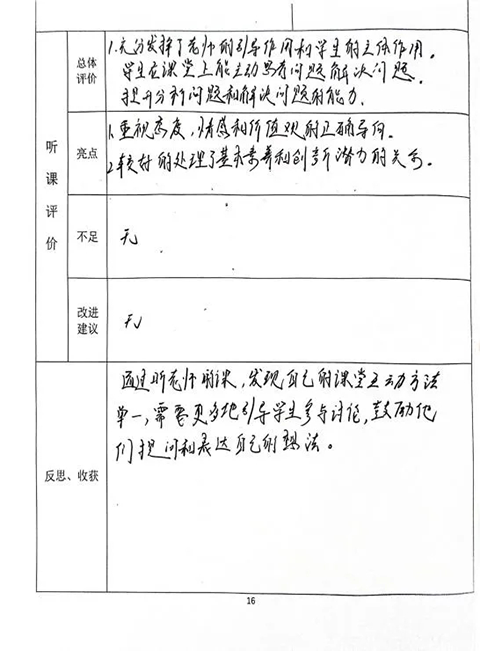 听课评价
总体
评价
1.充分发挥了老师的引导作用和学生的主体作用。
学生在课堂上能主动思考问题解决问题。
提升分析问题和解决问题的能力。
亮点
1.重视态度,情感和价值观的正确导向。
2.较好的处理了基本素养和创新潜力的关系。
不足
无
改进
建议
无
反思、收获
通过听老师的课,发现自己的课堂互动方法
单一,需要更多地引导学生参与讨论,鼓励他
们提问和表达自己的想法。
16